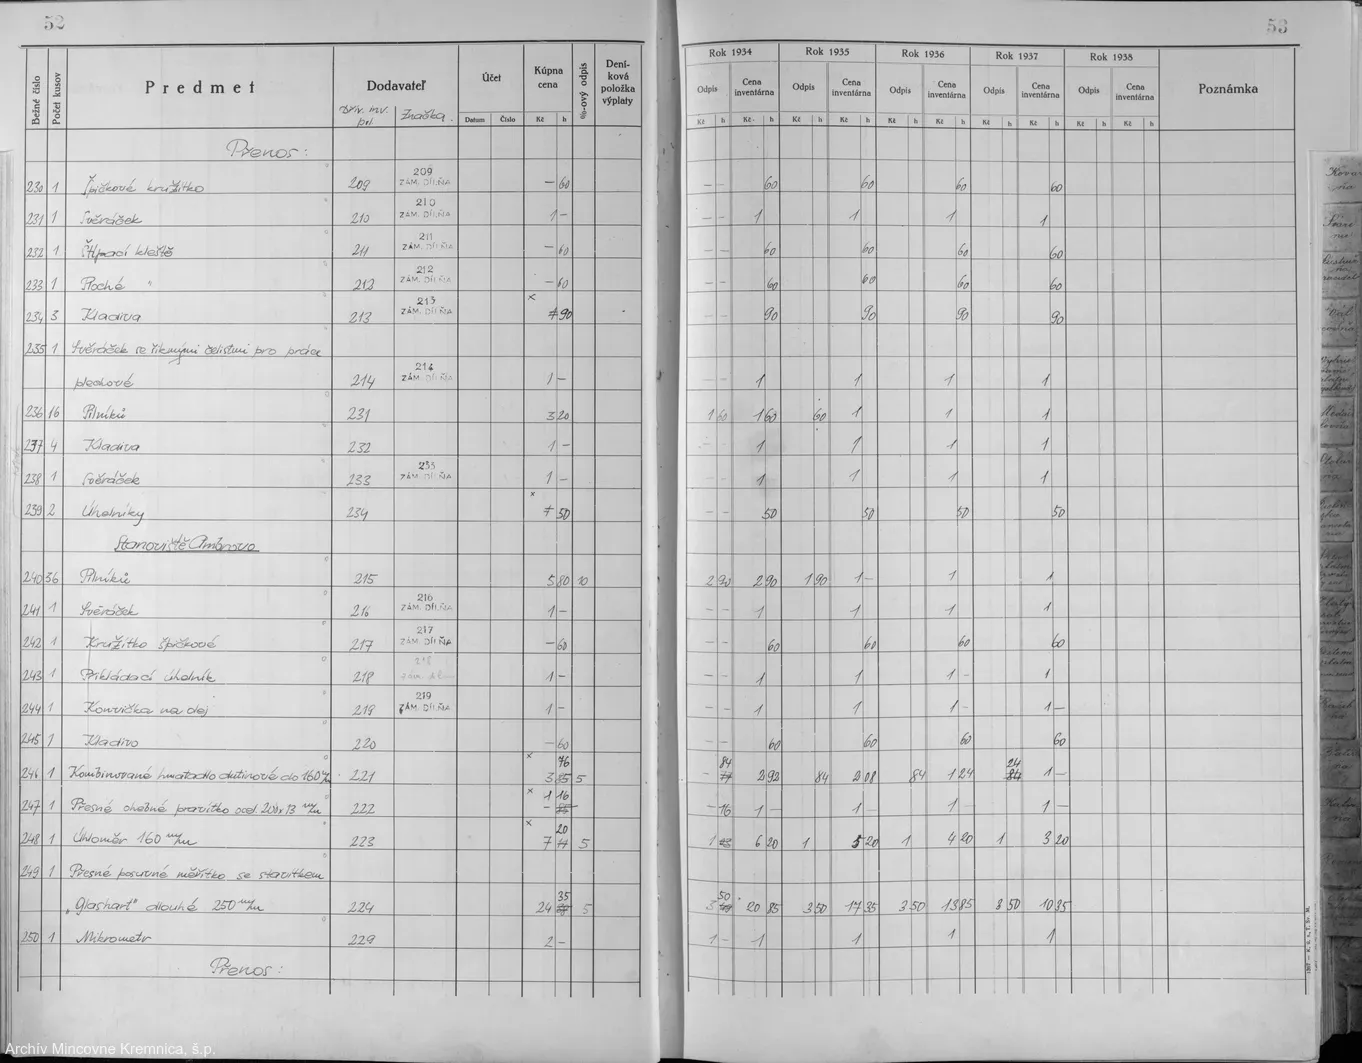 52
53
Bežné číslo Počet kusov Predmet Dodavateľ Účet Kúpna cena %-ový odpis Deníková položka výplaty
Značka Datum Číslo Kč h
Rok 1934 Rok 1935 Rok 1936 Rok 1937 Rok 1938 Poznámka
Odpis Cena inventárna Odpis Cena inventárna Odpis Cena inventárna Odpis Cena inventárna Odpis Cena inventárna
Kč h Kč h Kč h Kč h Kč h Kč h Kč h Kč h Kč h Kč h
Přenos:
230 1 Špičkové kružítko 209 209 ZÁM. DÍLŇA — 60 — — 60 60 60 60
231 1 Svěráček 210 210 ZÁM. DÍLŇA 1 — — — 1 1 1 1
232 1 Štípací kleště 211 211 ZÁM. DÍLŇA — 60 — — 60 60 60 60
233 1 Ploché " 212 212 ZÁM. DÍLŇA — 60 — — 60 60 60 60
234 3 Kladiva 213 213 ZÁM. DÍLŇA × 90 — — 90 90 90 90
235 1 Svěráček se šikmými čelistmi pro práce
plechové 214 214 ZÁM. DÍLŇA 1 — — — 1 1 1 1
236 16 Pilníků 231 3 20 1 60 1 60 60 1 1 1
237 4 Kladiva 232 1 — — — 1 1 1 1
238 1 Svěráček 233 233 ZÁM. DÍLŇA 1 — — — 1 1 1 1
239 2 Úhelníky 234 × 50 — — 50 50 50 50
Stanoviště Ambrovo
240 36 Pilníků 215 5 80 10 2 90 2 90 1 90 1 — 1 1
241 1 Svěráček 216 216 ZÁM. DÍLŇA 1 — — — 1 1 1 1
242 1 Kružítko špičkové 217 217 ZÁM. DÍLŇA — 60 — — 60 60 60 60
243 1 Přikládací úhelník 218 218 1 — — — 1 1 1 — 1
244 1 Konvička na olej 219 219 ZÁM. DÍLŇA 1 — — — 1 1 1 — 1 —
245 1 Kladivo 220 — 60 — — 60 60 60 60
246 1 Kombinované hmatadlo dutinové do 160 m/m 221 × 3 76 5 84 2 92 84 2 08 84 1 24 24 1 —
247 1 Přesné ohebné pravítko ocel. 200x13 m/m 222 × 1 16 — 16 1 — 1 — 1 — 1 —
248 1 Úhloměr 160 m/m 223 × 7 20 5 1 6 20 1 5 20 1 4 20 1 3 20
249 1 Přesné posuvné měřítko se stavítkem
„Glashart" dlouhé 250 m/m 224 24 35 5 3 50 20 85 3 50 17 35 3 50 13 85 3 50 10 35
250 1 Mikrometr 229 2 — 1 — 1 1 1 1
Přenos:
Archív Mincovne Kremnica, š.p.